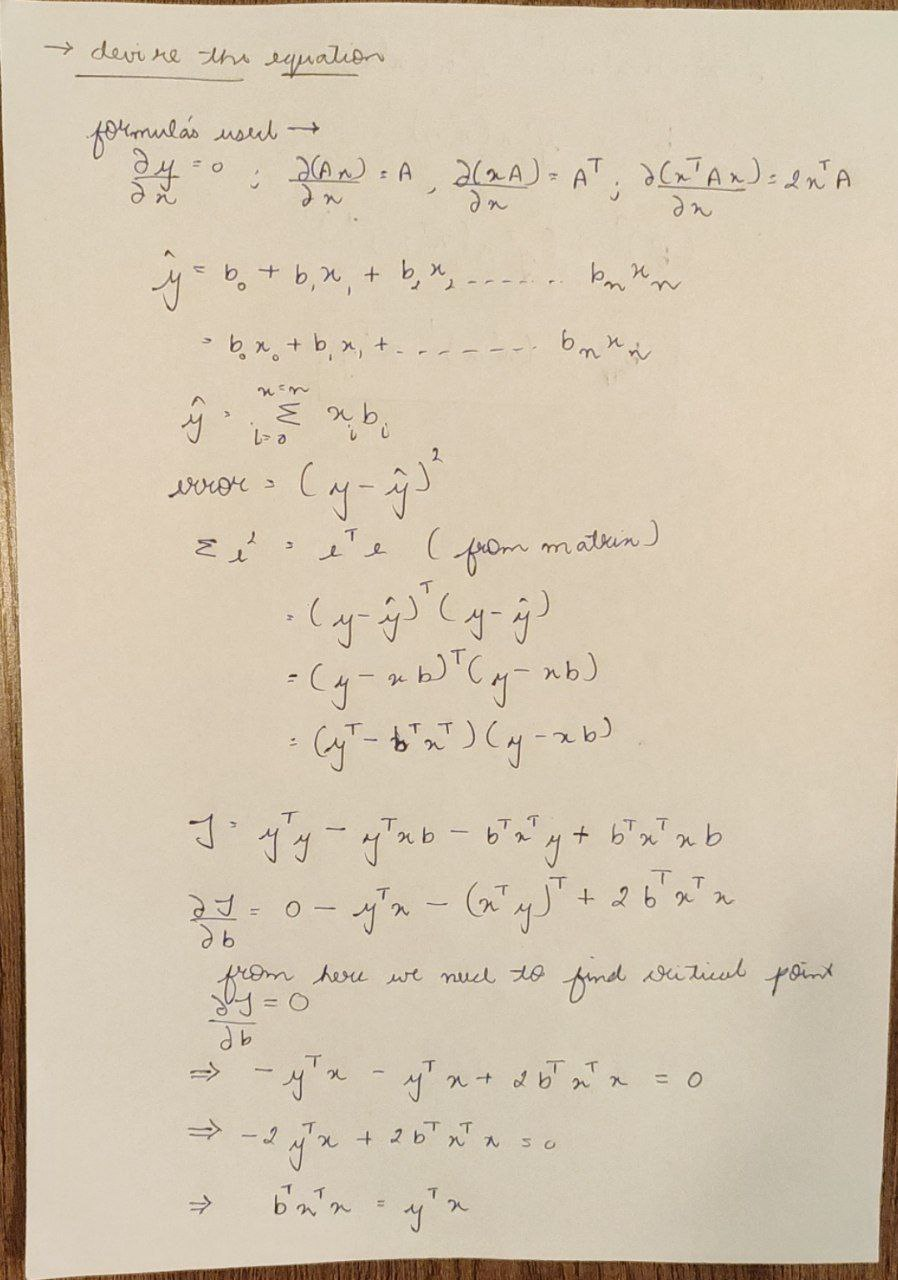 → derive the equation
formulas used →
∂y/∂x = 0 ; ∂(Ax)/∂x = A , ∂(xA)/∂x = Aᵀ ; ∂(xᵀAx)/∂x = 2xᵀA
ŷ = b₀ + b₁x₁ + b₂x₂ ------ bₙxₙ
= b₀x₀ + b₁x₁ + -------- bₙxₙ
ŷ = Σ_{i=0}^{x=n} xᵢbᵢ
error = (y - ŷ)²
Σe² = eᵀe (from matrix)
= (y - ŷ)ᵀ(y - ŷ)
= (y - xb)ᵀ(y - xb)
= (yᵀ - bᵀxᵀ)(y - xb)
J = yᵀy - yᵀxb - bᵀxᵀy + bᵀxᵀxb
∂J/∂b = 0 - yᵀx - (xᵀy)ᵀ + 2bᵀxᵀx
from here we need to find critical point
∂J/∂b = 0
⇒ -yᵀx - yᵀx + 2bᵀxᵀx = 0
⇒ -2yᵀx + 2bᵀxᵀx = 0
⇒ bᵀxᵀx = yᵀx